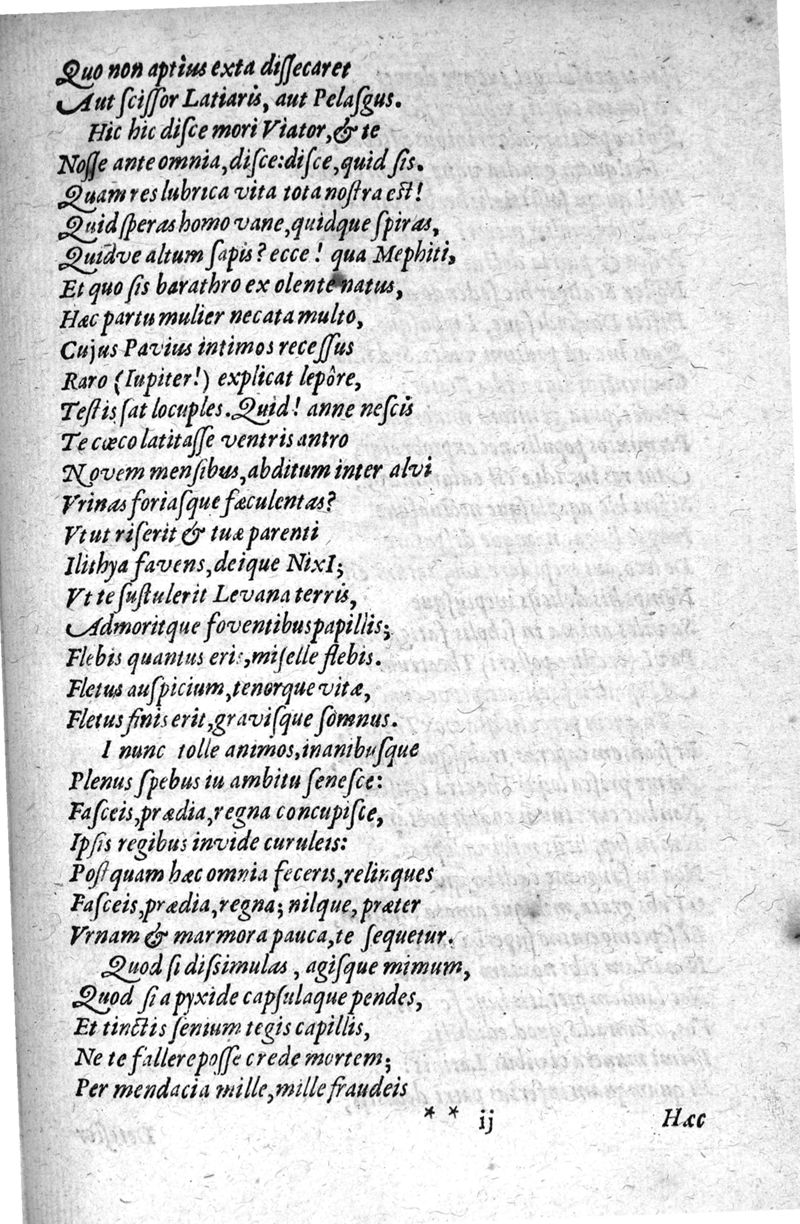 Quo non aptius exta diſſecaret
Aut ſciſſor Latiaris, aut Pelaſgus.
Hic hic diſce mori Viator, & te
Noſſe ante omnia, diſce: diſce, quid ſis.
Quam res lubrica vita tota noſtra eſt!
Quid ſperas homo vane, quidque ſpiras,
Quidve altum ſapis? ecce! qua Mephiti,
Et quo ſis barathro ex olente natus,
Hæc partu mulier necata multo,
Cujus Pavius intimos receſſus
Raro (Iupiter!) explicat lepôre,
Teſtis ſat locuples. Quid! anne neſcis
Te cæco latitaſſe ventris antro
Novem menſibus, abditum inter alvi
Vrinas foriaſque fæculentas?
Vt ut riſerit & tuæ parenti
Ilithya favens, deique NixI;
Vt te ſuſtulerit Levana terris,
Admoritque foventibus papillis;
Flebis quantus eris, miſelle flebis.
Fletus auſpicium, tenorque vitæ,
Fletus finis erit, graviſque ſomnus.
I nunc tolle animos, inanibuſque
Plenus ſpebus iu ambitu ſeneſce:
Faſceis, prædia, regna concupiſce,
Ipſis regibus invide curuleis:
Poſt quam hæc omnia feceris, relinques
Faſceis, prædia, regna; nilque, præter
Vrnam & marmora pauca, te ſequetur.
Quod ſi diſſimulas, agiſque mimum,
Quod ſi a pyxide capſulaque pendes,
Et tinctis ſenium tegis capillis,
Ne te fallere poſſe crede mortem;
Per mendacia mille, mille fraudeis
* * ij Hæc